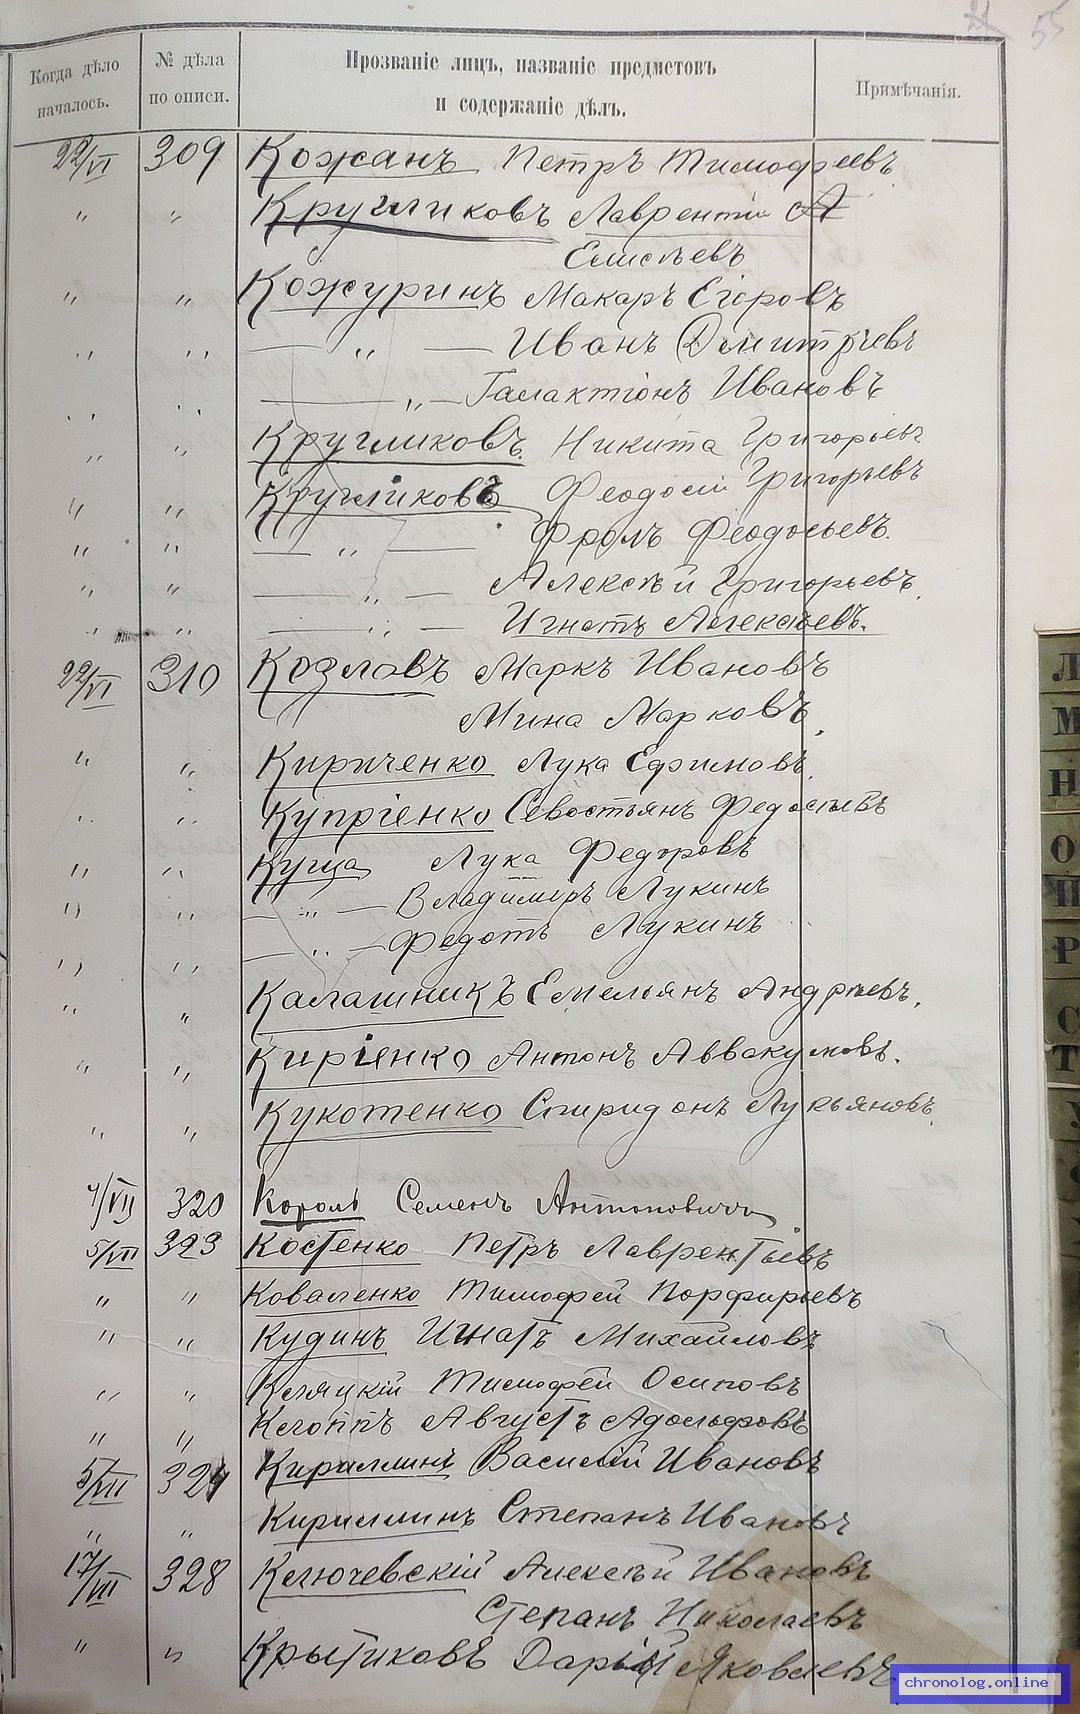 55
Когда дѣло началось.
№ дѣла по описи.
Прозваніе лицъ, названіе предметовъ и содержаніе дѣлъ.
Примѣчанія.
22/VI 309 Кожанъ Петръ Тимофеевъ
" " Кругликовъ Лаврентій
Елисѣевъ
" " Кожуринъ Макаръ Егоровъ
" " — " — Иванъ Дмитріевъ
" " — " — Галактіонъ Ивановъ
" " Кругликовъ Никита Григорьевъ
" " Кругликовъ Феодосій Григорьевъ
" " — " — Фролъ Феодосьевъ.
" " — " — Алексѣй Григорьевъ.
" " — " — Игнатъ Алексѣевъ.
22/VI 310 Козловъ Маркъ Ивановъ
Мина Марковъ.
" " Кириченко Лука Ефимовъ.
" " Купріенко Севостьянъ Федосѣевъ
" " Куща Лука Федоровъ
" " — " — Владиміръ Лукинъ
" " — " — Федотъ Лукинъ
" " Калашникъ Емельянъ Андреевъ.
" " Киріенко Антонъ Аввакумовъ.
" " Кукотенко Спиридонъ Лукьяновъ.
4/VII 320 Король Семенъ Антоновичъ
5/VII 323 Костенко Петръ Лаврентьевъ
" " Коваленко Тимофей Порфирьевъ
" " Кудинъ Игнатъ Михайловъ
" " Клецкій Тимофей Осиповъ
" " Клоппъ Августъ Адольфовъ
5/VII 324 Кириллинъ Василій Ивановъ
" " Кириллинъ Степанъ Ивановъ
17/VII 328 Ключевскій Алексѣй Ивановъ
Степанъ Николаевъ
" " Крытиковъ Дарій Яковлевъ
Л
М
Н
О
П
Р
С
Т
У
chronolog.online